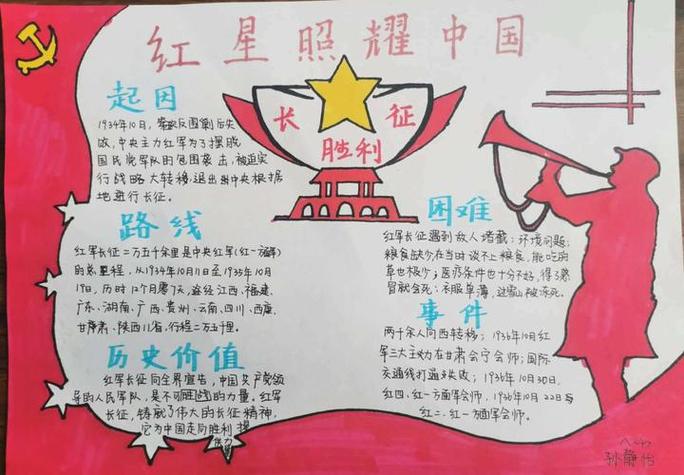 红星照耀中国
长征
胜利
起因
1934年10月，第五次反围剿后失
败，中央主力红军为了摆脱
国民党军队的包围袭击，被迫实
行战略大转移，退出中央根据
地进行长征。
路线
红军长征二万五千余里是中央红军(红一方面军)
的总里程，从1934年10月11日至1935年10月
19日，历时12个月零7天，途经江西、福建、
广东、湖南、广西、贵州、云南、四川、西康、
甘肃、陕西11省，行程二万五千里。
历史价值
红军长征向全界宣告，中国共产党领
导的人民军队，是不可战胜的力量，红军
长征，铸就了伟大的长征精神，
它为中国走向胜利提
困难
红军长征遇到敌人堵截；环境问题；
粮食缺少在当时谈不上粮食，能吃的
草也极少；医疗条件也十分差，得了感
冒就会死；衣服单薄，过雪山被冻死。
事件
两千余人向西转移；1936年10月红
军三大主力在甘肃会宁会师；国际
交通线打通失败；1936年10月30日，
红四、红一方面军会师，1936年10月22日与
红二、红一方面军会师。
孙静怡